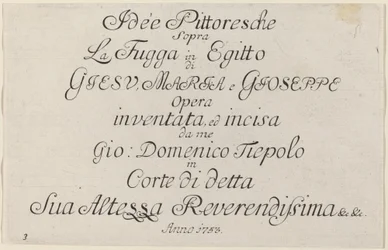 Idée Pittoresche
Sopra
La Fugga in Egitto
di
GIESV, MARIA e GIOSEPPE
Opera
inventata, ed incisa
da me
Gio: Domenico Tiepolo
in
Corte di detta
Sua Altezza Reverendissima &c. &c.
Anno 1753.
3